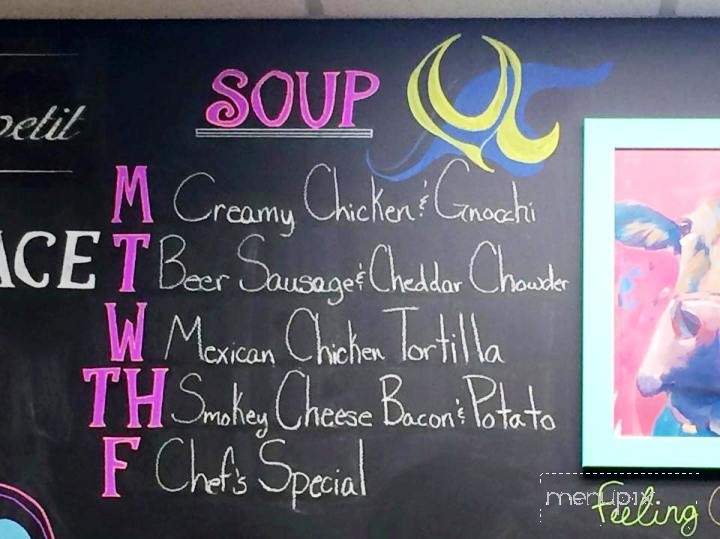 SOUP
M Creamy Chicken & Gnocchi
T Beer Sausage & Cheddar Chowder
W Mexican Chicken Tortilla
TH Smokey Cheese Bacon & Potato
F Chef's Special
menupix
Feeling